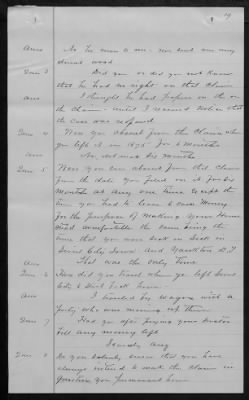 19
Ans No he never to me - nor sent me any
direct word
Ques 3 Did you or did you not know
that he had no right on that claim
Ans I thought he had
the claim - until I received notice that
the case was
Ques 4 Were you absent from the claim when
you left it in 1875 for 6 months
Ans No, not was six months
Ques 5 Were you ever absent from this claim
from the date you filed on it for six
months at any one time except the
time you had to leave to earn money
for the purpose of making your home
comfortable the same being the
time that you were sick in
Sioux City Iowa and Yankton D.T.
Ans That was the only time
Ques 6 How did you travel when you left Sioux
City to
Ans I traveled by Wagon with a
party who was moving up there
Ques 7 Had you after paying your Doctor
bill any money left
Ans Scarcely Any
Ques 8 Do you solemnly swear that you have
always intended to make the claim in
question your permanent home